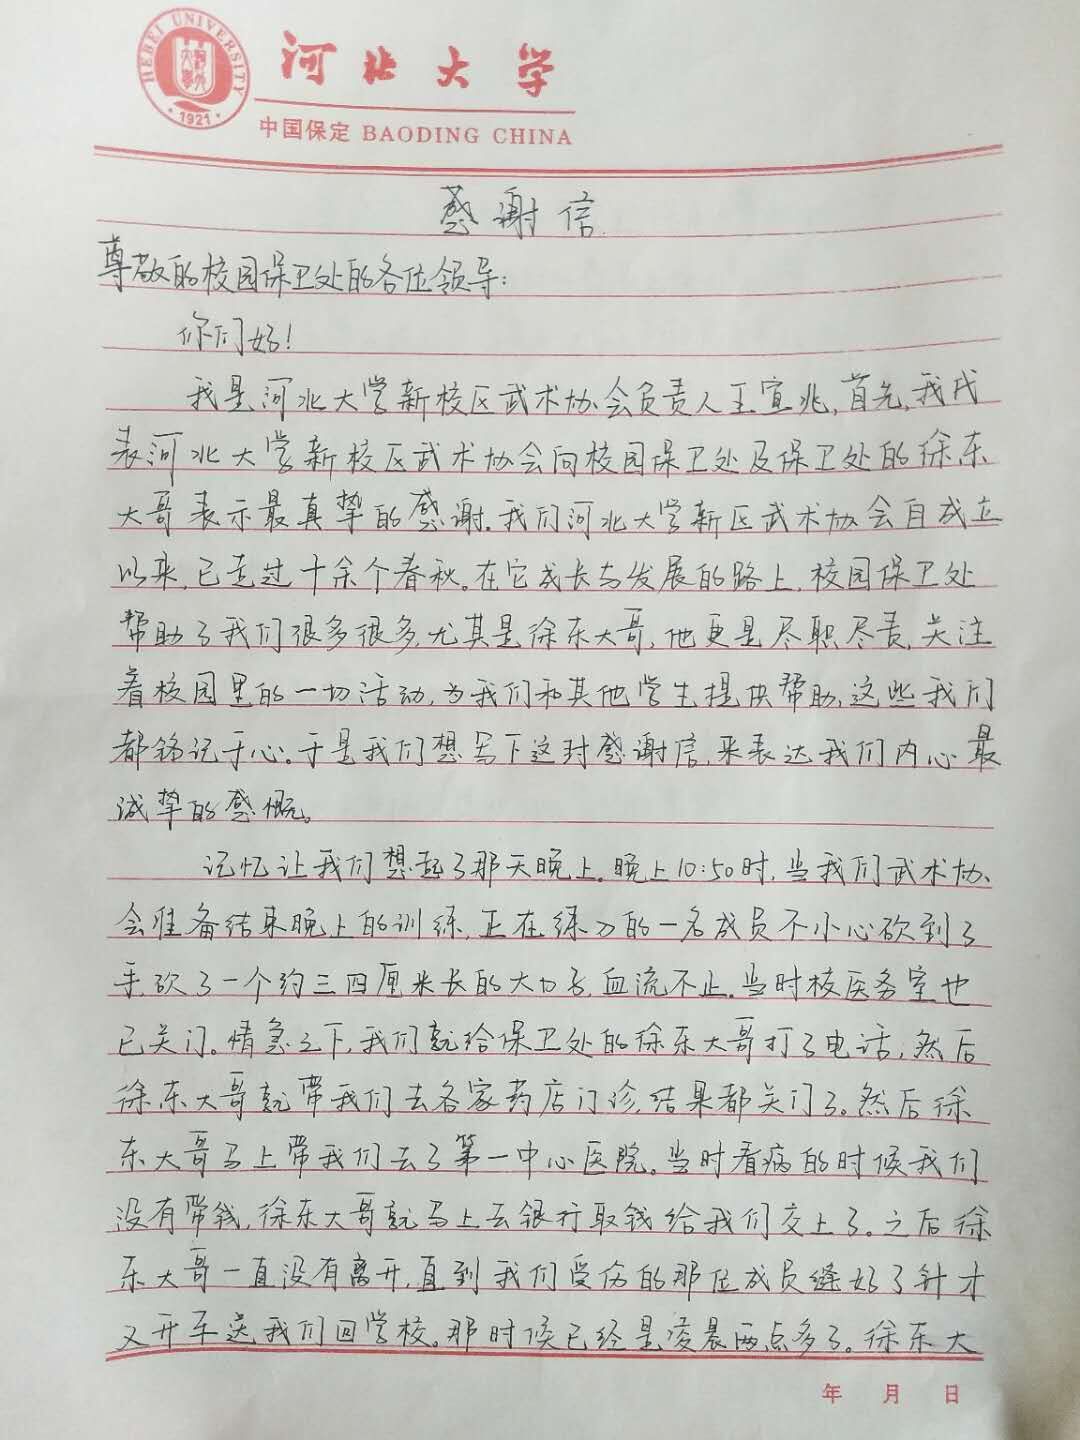 HEBEI UNIVERSITY
河北大学
1921
河北大学
中国保定 BAODING CHINA
感谢信
尊敬的校园保卫处的各位领导:
你们好!
我是河北大学新校区武术协会负责人王宣兆,首先,我代
表河北大学新校区武术协会向校园保卫处及保卫处的徐东
大哥表示最真挚的感谢.我们河北大学新区武术协会自成立
以来,已走过十余个春秋。在它成长与发展的路上,校园保卫处
帮助了我们很多很多,尤其是徐东大哥,他更是尽职尽责,关注
着校园里的一切活动,为我们和其他学生提供帮助,这些我们
都铭记于心。于是我们想写下这封感谢信,来表达我们内心最
诚挚的感慨。
记忆让我们想起了那天晚上.晚上10:50时,当我们武术协
会准备结束晚上的训练,正在练刀的一名成员不小心砍到了
手,砍了一个约三四厘米长的大口子,血流不止.当时校医务室也
已关门。情急之下,我们就给保卫处的徐东大哥打了电话,然后
徐东大哥就带我们去各家药店门诊,结果都关门了。然后徐
东大哥马上带我们去了第一中心医院。当时看病的时候我们
没有带钱,徐东大哥就马上去银行取钱给我们交上了。之后徐
东大哥一直没有离开,直到我们受伤的那位成员缝好了针才
又开车送我们回学校。那时候已经是凌晨两点多了。徐东大
年 月 日